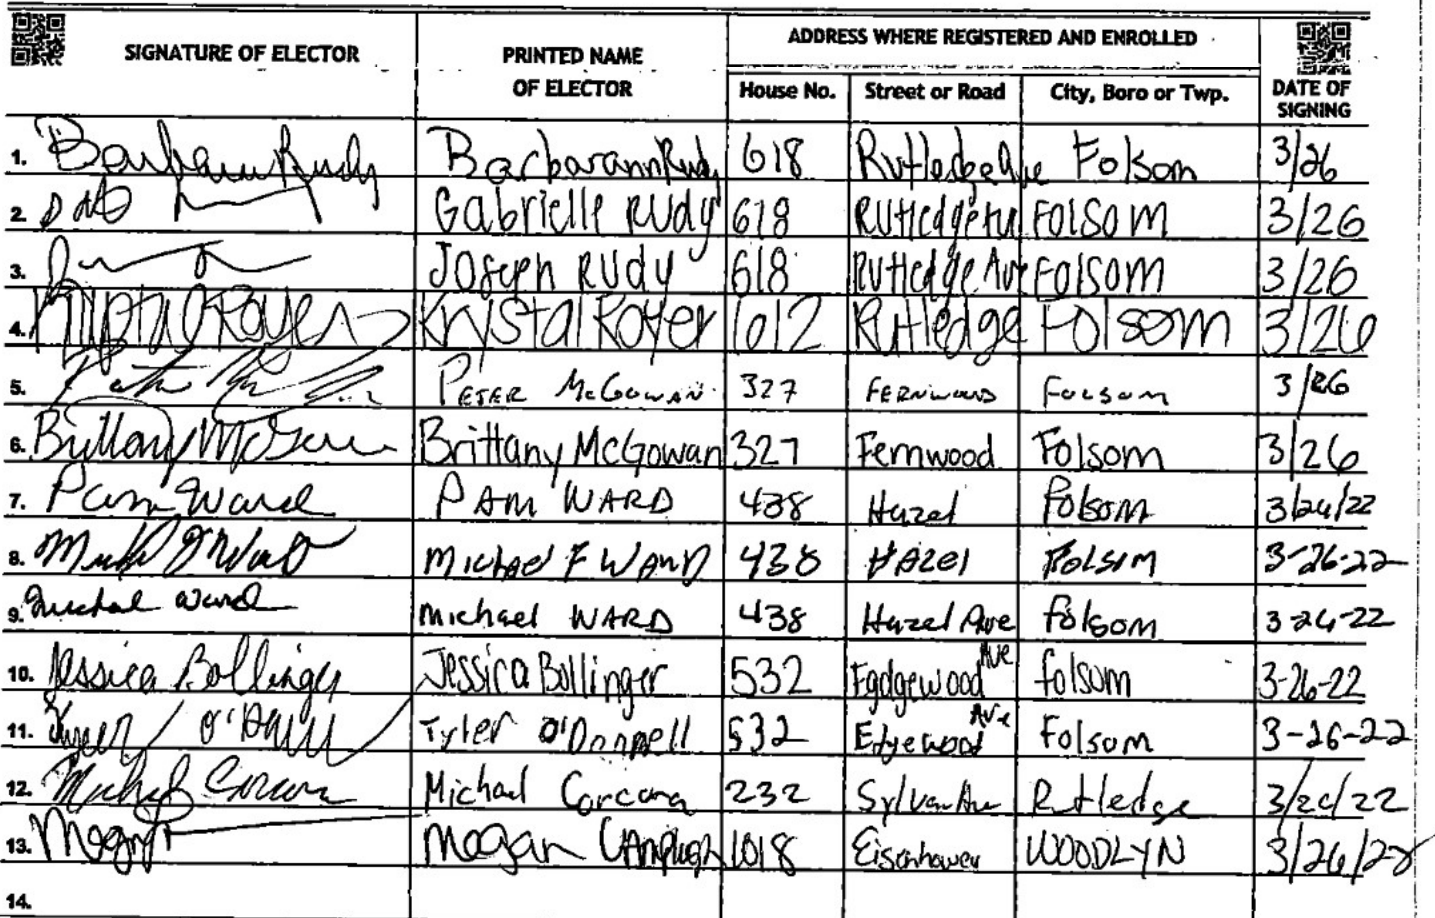 SIGNATURE OF ELECTOR PRINTED NAME OF ELECTOR ADDRESS WHERE REGISTERED AND ENROLLED DATE OF SIGNING
House No. Street or Road City, Boro or Twp.
1. Barbarann Rudy 618 Rutledge Ave Folsom 3/26
2. Gabrielle RUDY 618 Rutledge FOLSOM 3/26
3. Joseph RUDY 618 RUTledge Ave FOLSOM 3/26
4. Krystal Royer Krystal Royer 1012 Rutledge Folsom 3/26
5. PETER McGOWAN 327 FERNWOOD FOLSOM 3/26
6. Brittany McGowan Brittany McGowan 327 Fernwood Folsom 3/26
7. Pam Ward PAM WARD 438 Hazel folsom 3/26/22
8. Michael F WARD 438 HAZel FOLSOM 3-26-22
9. Michael Ward Michael WARD 438 Hazel Ave folsom 3-26-22
10. Jessica Bollinger Jessica Bollinger 532 Egdgewood Ave folsom 3-26-22
11. Tyler O'Donnell 532 Edgewood Ave Folsom 3-26-22
12. Michael Corcoran 232 Sylvan Ave Rutledge 3/26/22
13. Megan 1018 Eisenhower WOODLYN 3/26/22
14.